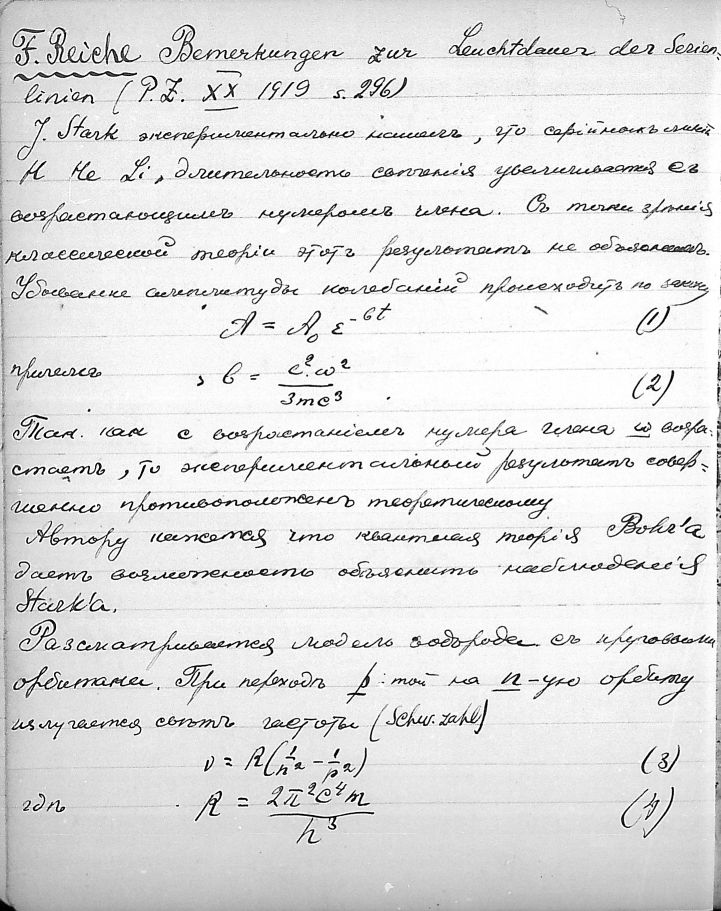 F. Reiche Bemerkungen zur Leuchtdauer der Serien-
linien (P.Z. XX 1919 s. 296)
J. Stark экспериментально нашелъ, что серійныхъ линій
H He Li, длительность свѣченія увеличивается съ
возрастающимъ нумеромъ члена. Съ точки зрѣнія
классической теоріи этотъ результатъ не объяснимъ.
Убыванiе амплитуды колебаній происходитъ по закону
A = A₀ ε^{-bt} (1)
причемъ , b = \frac{e² ω²}{3mc³} (2)
Так как с возрастаніемъ нумера члена ω возра-
стаетъ, то экспериментальный результатъ совер-
шенно противоположенъ теоретическому
Автору кажется что квантная теорія Bohr'a
даетъ возможность объяснить наблюденія
Stark'a.
Разсматривается модель водорода съ круговыми
орбитами. При переходѣ p-той на n-ую орбиту
излучается свѣтъ частоты (Schw. zahl)
ν = R(\frac{1}{n²} - \frac{1}{p²}) (3)
гдѣ R = \frac{2π²e⁴m}{h³} (4)